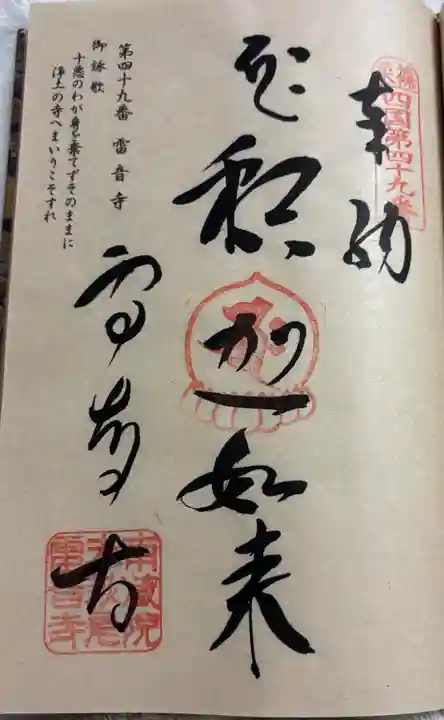 篠栗四国第四十九番
奉納
釈迦如来
雷音寺
第四十九番 雷音寺
御詠歌
十悪のわが身を棄てずそのままに
浄土の寺へまいりこそすれ
南蔵院
雷音寺